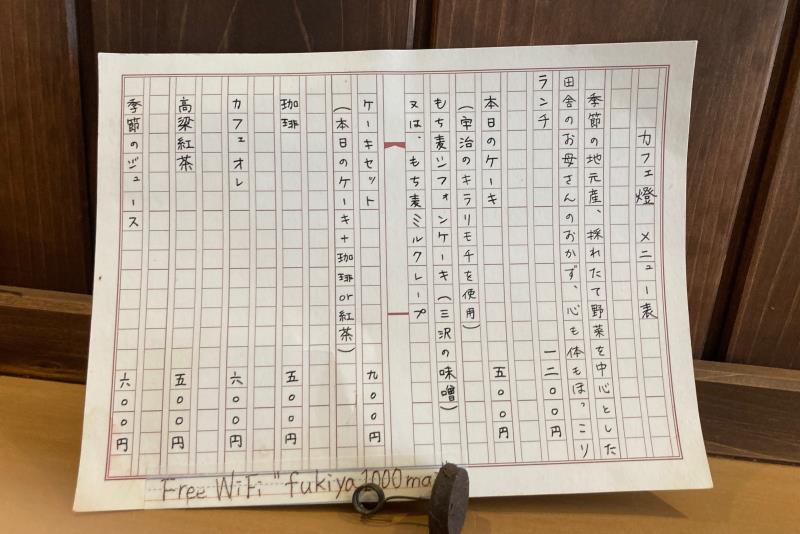 カフェ燈 メニュー表
季節の地元産、採れたて野菜を中心とした
田舎のお母さんのおかず、心も体もほっこり
ランチ 一二〇〇円
本日のケーキ 五〇〇円
(宇治のキラリモチを使用)
もち麦シフォンケーキ(三沢の味噌)
又は、もち麦ミルクレープ
ケーキセット 九〇〇円
(本日のケーキ+珈琲or紅茶)
珈琲 五〇〇円
カフェオレ 六〇〇円
高梁紅茶 五〇〇円
季節のジュース 六〇〇円
Free WiFi "fukiya1000ma